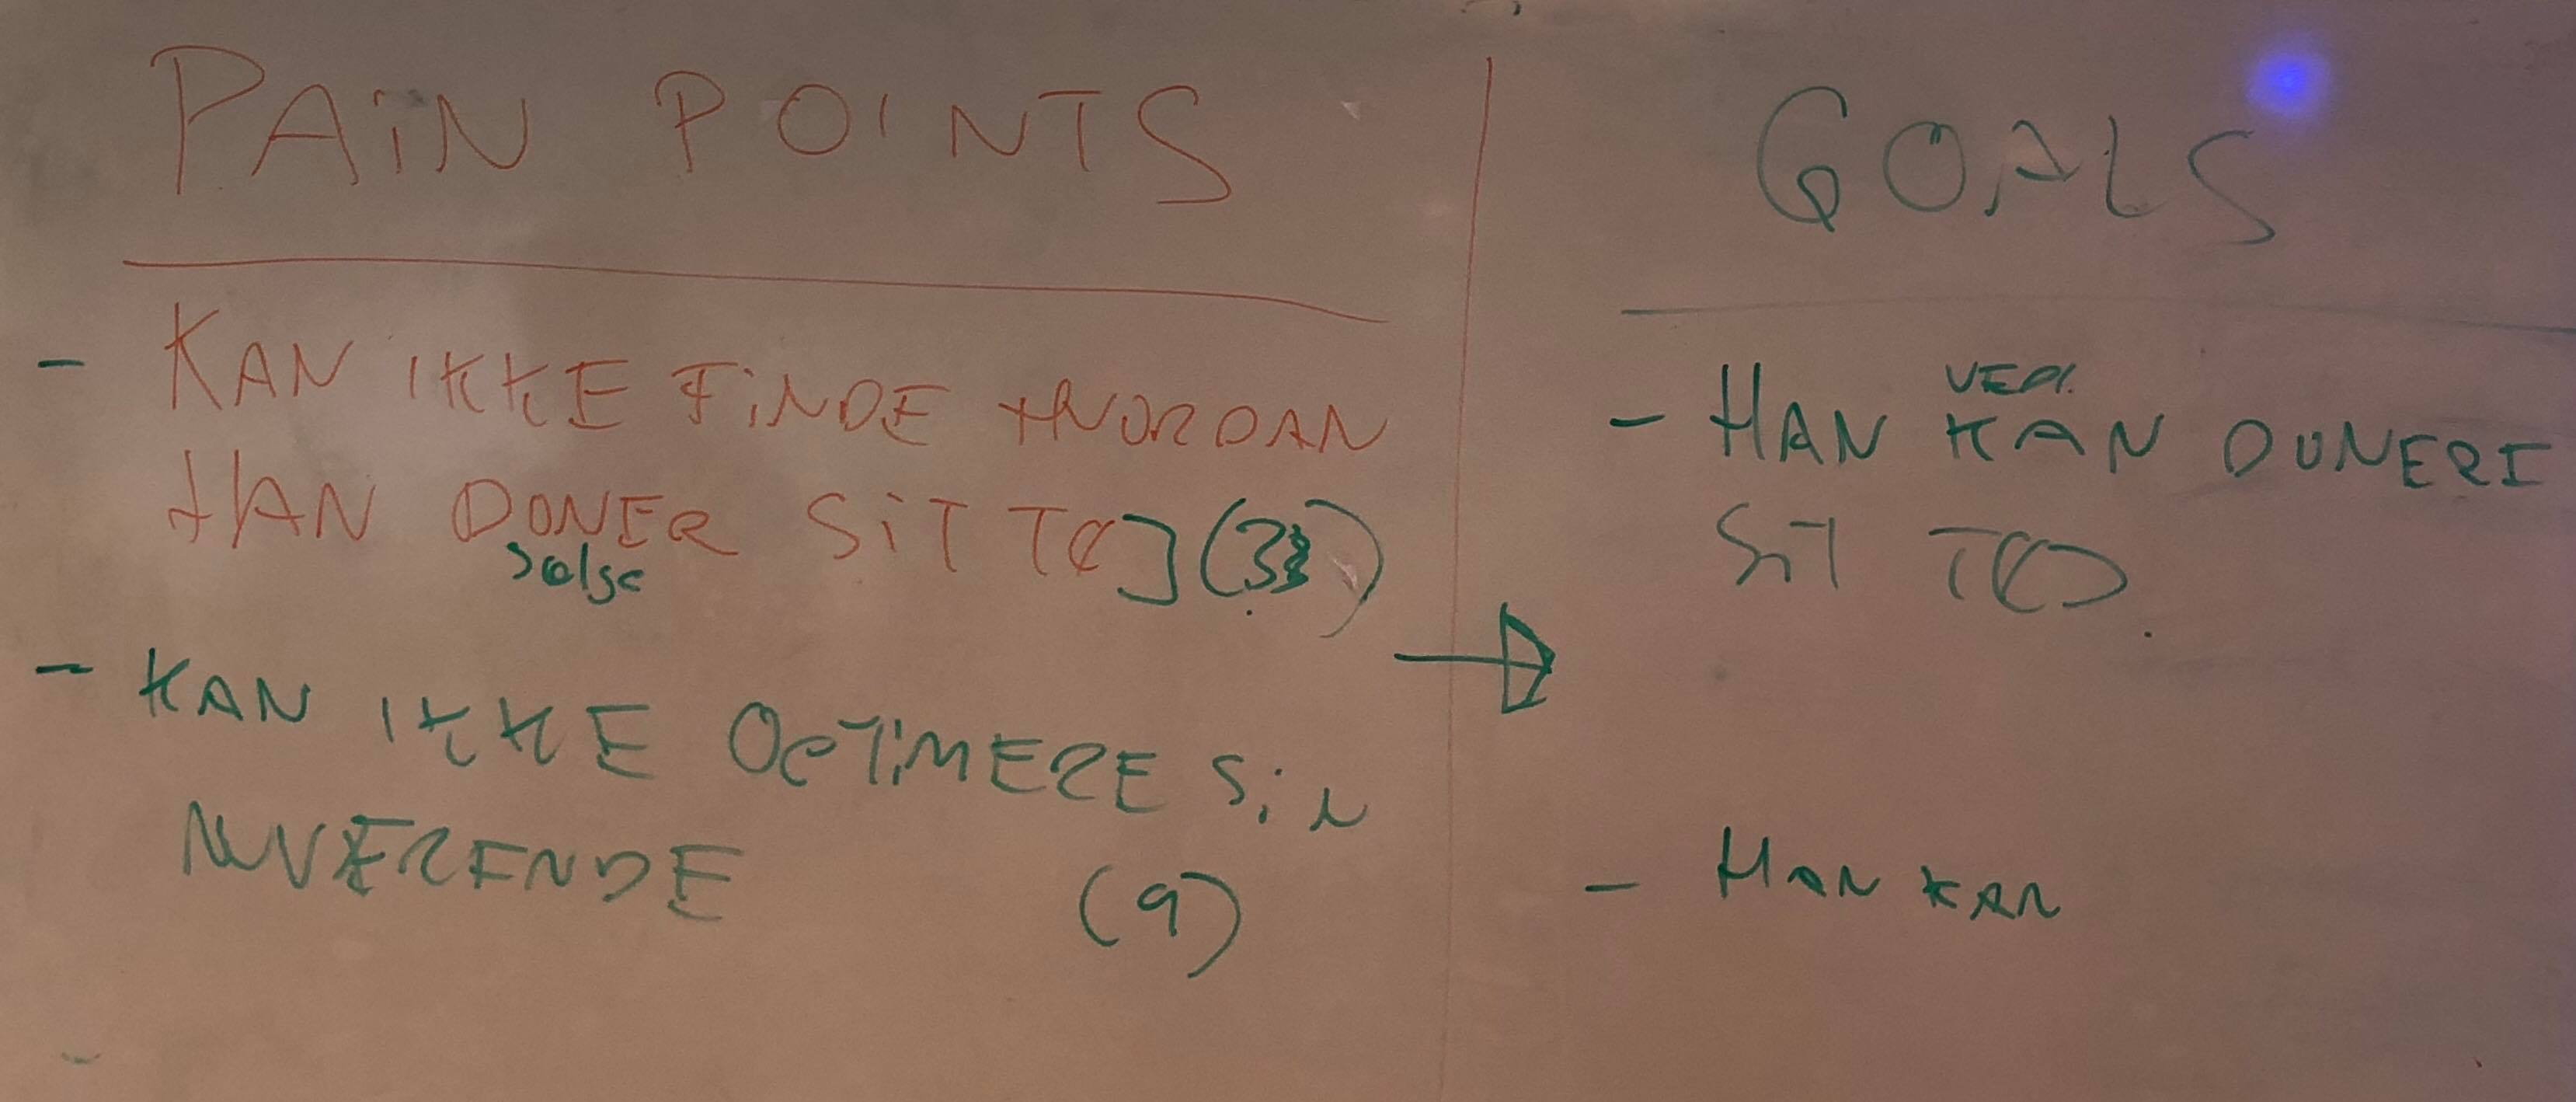 PAIN POINTS
- KAN IKKE FINDE HVORDAN
HAN DONER SIT TØJ (3)
sælge
- KAN IKKE OPTIMERE SIN
NUVÆRENDE (9)
GOALS
- HAN KAN DONERE
SIT TØJ
- HAN KAN